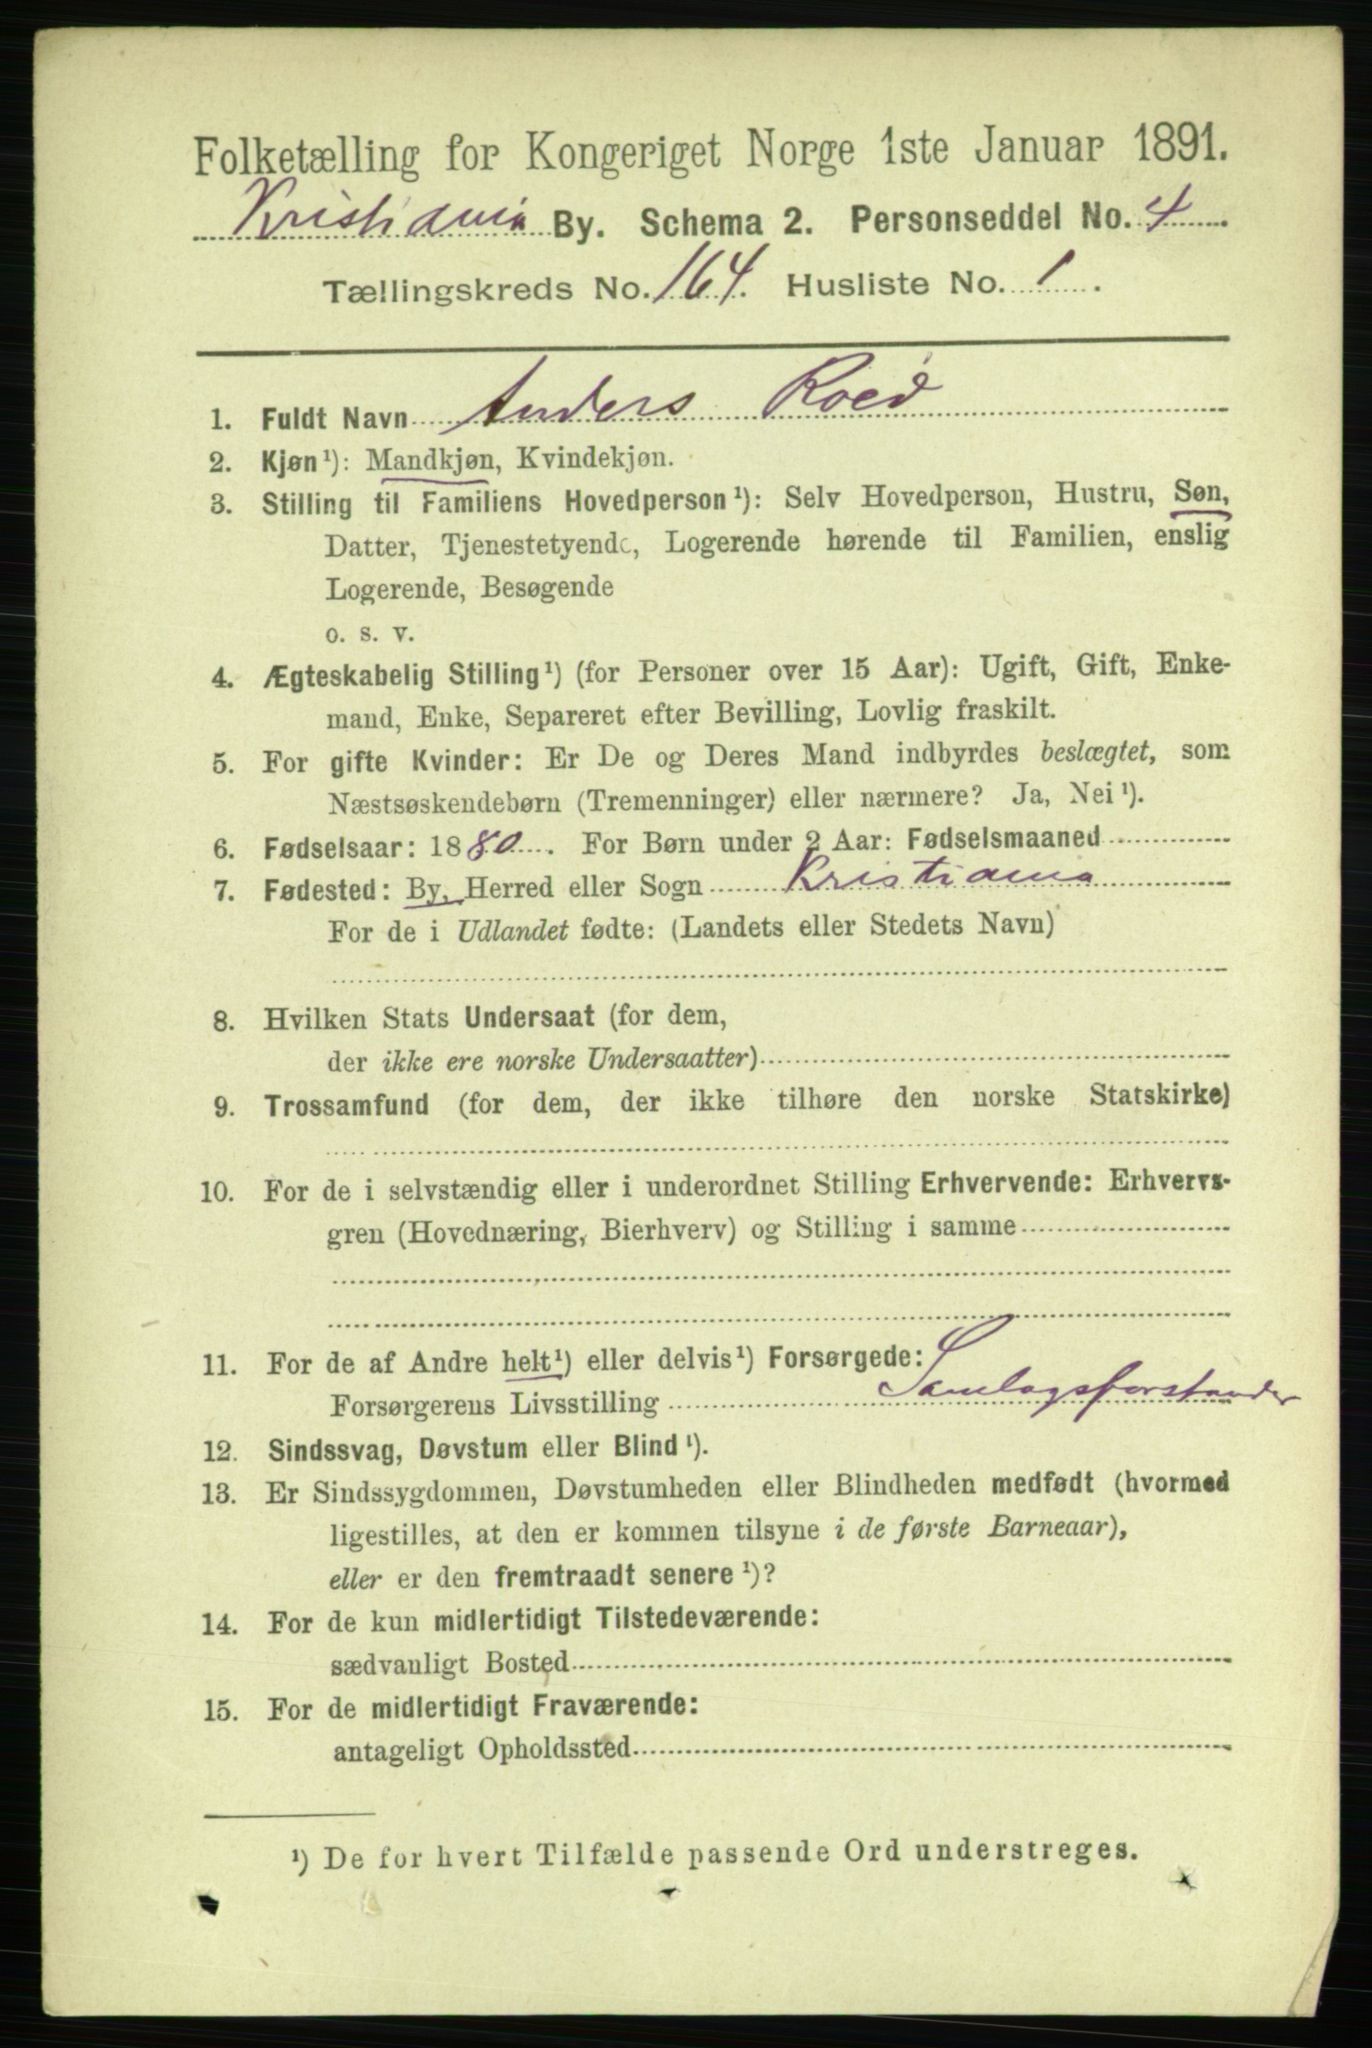 Folketælling for Kongeriget Norge 1ste Januar 1891.
Kristiania By. Schema 2. Personseddel No. 4
Tællingskreds No. 164. Husliste No. 1.
1. Fuldt Navn Anders Roed
2. Kjøn¹): Mandkjøn, Kvindekjøn.
3. Stilling til Familiens Hovedperson¹): Selv Hovedperson, Hustru, Søn,
Datter, Tjenestetyende, Logerende hørende til Familien, enslig
Logerende, Besøgende
o. s. v.
4. Ægteskabelig Stilling¹) (for Personer over 15 Aar): Ugift, Gift, Enke-
mand, Enke, Separeret efter Bevilling, Lovlig fraskilt.
5. For gifte Kvinder: Er De og Deres Mand indbyrdes beslægtet, som
Næstsøskendebørn (Tremenninger) eller nærmere? Ja, Nei¹).
6. Fødselsaar: 1880. For Børn under 2 Aar: Fødselsmaaned
7. Fødested: By, Herred eller Sogn Kristiania
For de i Udlandet fødte: (Landets eller Stedets Navn)
8. Hvilken Stats Undersaat (for dem,
der ikke ere norske Undersaatter)
9. Trossamfund (for dem, der ikke tilhøre den norske Statskirke)
10. For de i selvstændig eller i underordnet Stilling Erhvervende: Erhvervs-
gren (Hovednæring, Bierhverv) og Stilling i samme
11. For de af Andre helt¹) eller delvis¹) Forsørgede:
Forsørgerens Livsstilling Samlagsforstander
12. Sindssvag, Døvstum eller Blind¹).
13. Er Sindssygdommen, Døvstumheden eller Blindheden medfødt (hvormed
ligestilles, at den er kommen tilsyne i de første Barneaar),
eller er den fremtraadt senere¹)?
14. For de kun midlertidigt Tilstedeværende:
sædvanligt Bosted
15. For de midlertidigt Fraværende:
antageligt Opholdssted
¹) De for hvert Tilfælde passende Ord understreges.